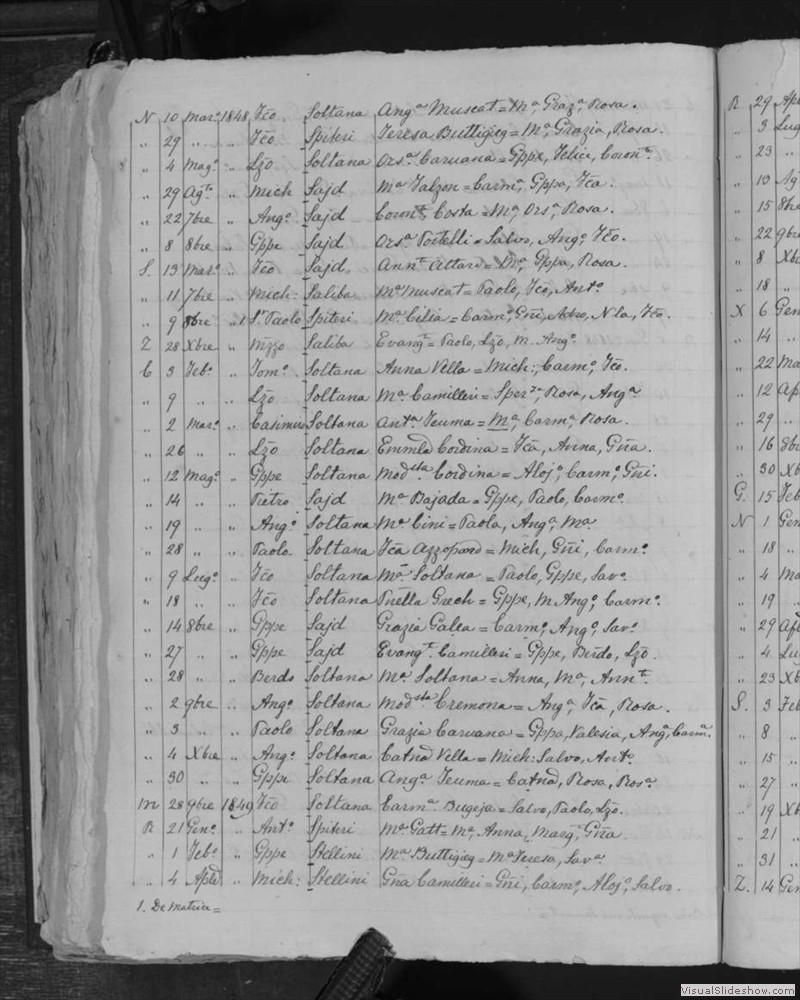 N 10 Mar.º 1848 Fčo Soltana Ang.ª Muscat = M.ª, Graz.ª, Rosa.
„ 29 „ „ Fčo Spiteri Teresa Buttigieg = M.ª, Grazia, Rosa.
„ 4 Mag.º „ Lžo Soltana Ors.ª Caruana = Gppe, Felice, Coron.ª
„ 29 Ag.to „ Mich Sajd M.ª Falzon = Carm.ª, Gppa, Fča.
„ 22 7bre „ Ang.º Sajd Costa = M.ª, Ors.ª, Rosa.
„ 8 8bre „ Gppe Sajd Ors.ª Portelli = Salvo, Ang.º, Fčo.
S. 13 Mar.º „ Fčo Sajd Ann.t Attard = M.ª, Gppa, Rosa.
„ 11 7bre „ Mich: Saliba M.ª Muscat = Paolo, Fčo, Ant.º
„ 9 8bre „ 1 S.r Paolo Spiteri M.ª Cilia = Carm.º, Gñi, N̄la, Fčo.
Z 28 Xbre „ Nizzo Saliba Evang.t = Paolo, Lžo, M. Ang.º
C 3 Feb.º „ Tom.º Soltana Anna Vella = Mich:, Carm.º, Fčo.
„ 9 „ „ Lžo Soltana M.ª Camilleri = Sper.za, Rosa, Ang.ª
„ 2 Mar.º „ Casimiro Soltana Ant.ª Teuma = M.ª, Carm.ª, Rosa.
„ 26 „ „ Lžo Soltana Cordina = Fča, Anna, Gña.
„ 12 Mag.º „ Gppe Soltana Mod.sta Cordina = Aloj.º, Carm.º, Gñi.
„ 14 „ „ Pietro Sajd M.ª Bajada = Gppe, Paolo, Carm.º
„ 19 „ „ Ang.º Soltana M.ª Cini = Paola, Ang.ª, M.ª
„ 28 „ „ Paolo Soltana Fča Azzopard = Mich, Gñi, Carm.º
„ 9 Lug.º „ Fčo Soltana M.ª Soltana = Paolo, Gppe, Sav.º
„ 18 „ „ Fčo Soltana Grech = Gppe, M. Ang.º, Carm.º
„ 14 8bre „ Gppe Sajd Grazia Galea = Carm.º, Ang.º, Sav.º
„ 27 „ „ Gppe Sajd Evang.t Camilleri = Gppe, Berdo, Lžo.
„ 28 „ „ Berdo Soltana M.ª Soltana = Anna, M.ª, Ann.t
„ 2 9bre „ Ang.º Soltana Mod.sta Cremona = Ang.ª, Fča, Rosa.
„ 3 „ „ Paolo Soltana Grazia Caruana = Gppa, Valesia, Ang.ª, Carm.ª
„ 4 Xbre „ Ang.º Soltana Catnd Vella = Mich: Salvo, Ant.º
„ 30 „ „ Gppe Soltana Ang.ª Teuma = Catnd, Rosa, Ros.ª
M 28 9bre 1849 Fčo Soltana Carm.ª Bugeja = Salvo, Paolo, Lžo.
R 21 Gen.º „ Ant.º Spiteri M.ª Gatt = M.ª, Anna, Marg.t, Gña
„ 1 Feb.º „ Gppe Stellini M.ª Buttigieg = M.ª Teresa, Sav.ª
„ 4 Aple „ Mich: Stellini Gña Camilleri = Gñi, Carm.º, Aloj.º, Salvo.
1. De Matria =
R 29 Ap
„ 3 Lug
„ 23 „
„ 13 Ag
„ 15 8bre
„ 22 9bre
„ 8 Xb
„ 18 „
X 6 Gen
„ 14 „
„ 22 Ma
„ 12 Ap
„ 29 „
„ 16 8b
„ 30 Xb
G. 15 Feb
N 1 Gen
„ 18 „
„ 4 Ma
„ 19 „
„ 29 Ap
„ 4 Lu
„ 23 Xb
S. 3 Feb
„ 8 „
„ 15 „
„ 27 „
„ 19 Xb
„ 21 „
„ 31 „
Z. 14 Gen
VisualSlideshow.com